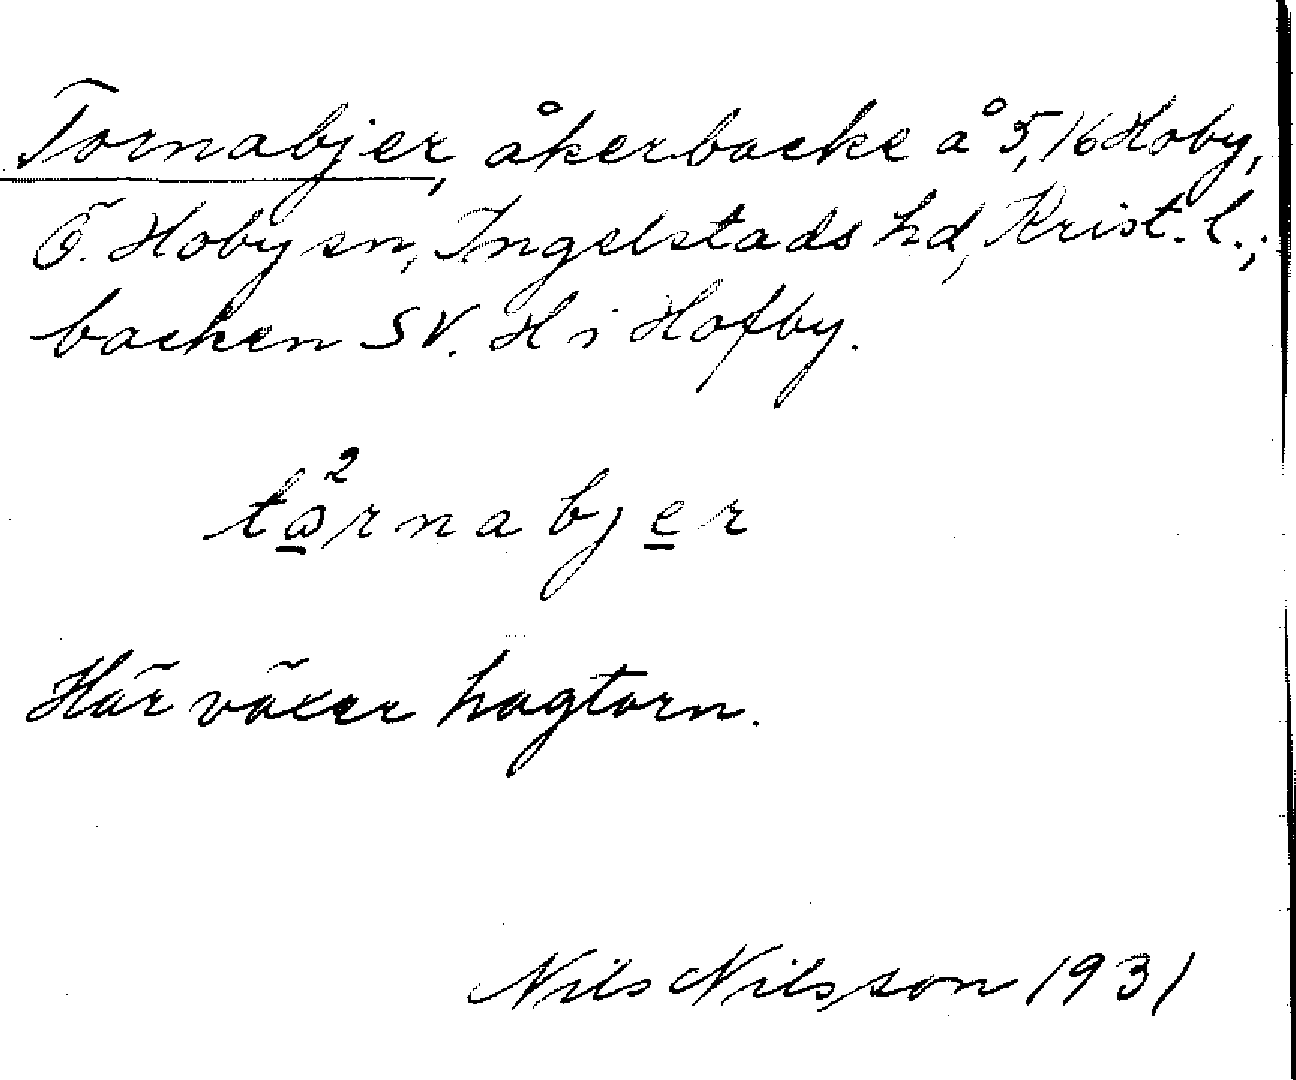 Tornabjer, åkerbacke å 5,16 Hoby,
Ö. Hoby sn, Ingelstads hd, Krist. l.;
backen SV. H i Hofby.
to²rnabjer
Här växer hagtorn.
Nils Nilsson 1931